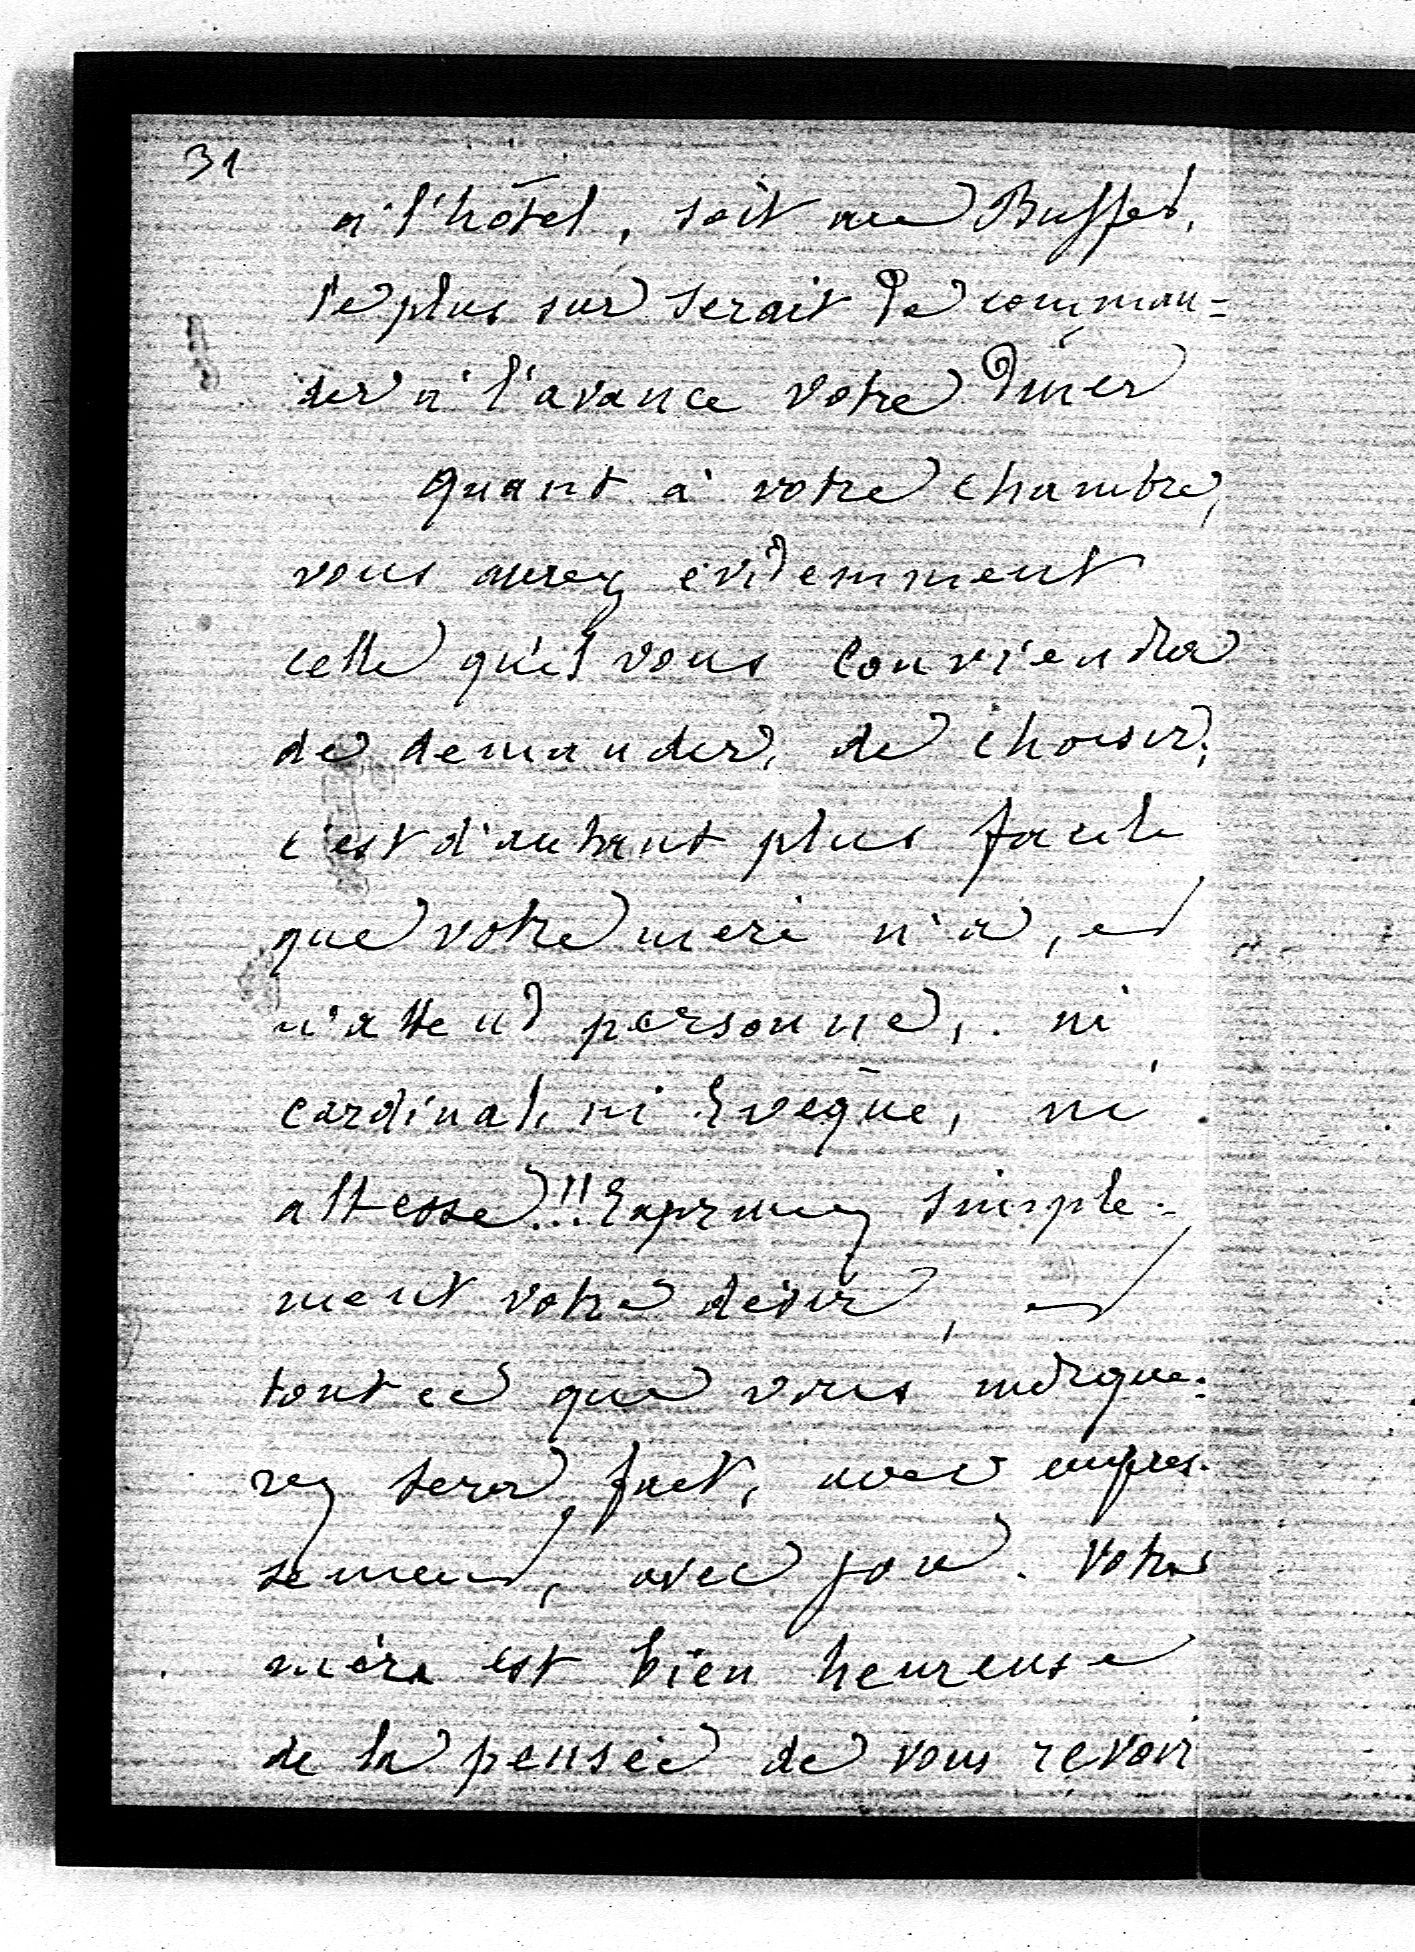 31
à l'hôtel, soit au Buffet,
le plus sur serait de comman-
der à l'avance votre diner
Quant à votre chambre,
vous aurez évidemment
celle qu'il vous conviendra
de demander, de choisir,
c'est d'autant plus facile
que votre mère n'a, et
n'attend personne, ni
cardinal, ni Evêque, ni
altesse!!! Exprimez simple-
ment votre désir, et
tout ce que vous indique-
rez sera fait, avec empres-
sement, avec joie. Votre
mère est bien heureuse
de la pensée de vous revoir